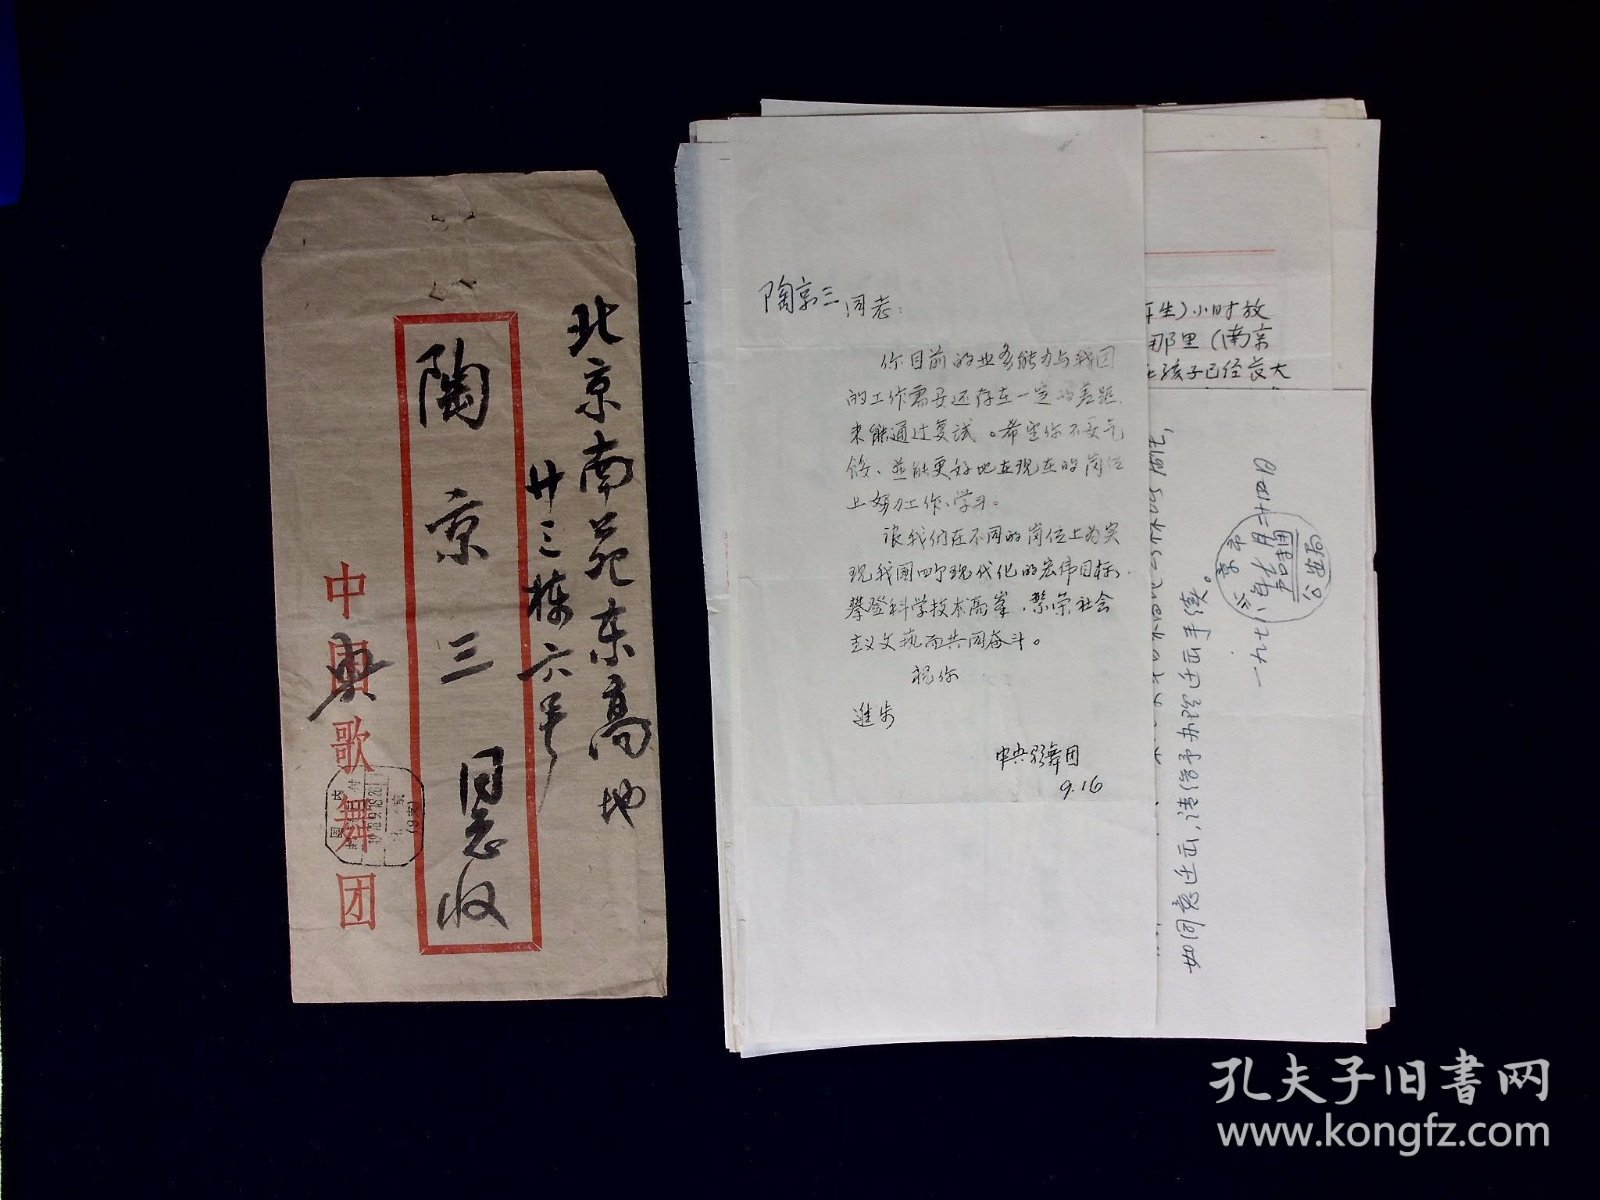 北京南苑东高地
廿三栋六号
陶京三 同志收
中国歌舞团
央
陶京三同志:
你目前的业务能力与我团
的工作需要还存在一定的差距,
未能通过复试。希望你不要气
馁、并能更好地在现在的岗位
上努力工作、学习。
让我们在不同的岗位上为实
现我国四个现代化的宏伟目标,
攀登科学技术高峯,繁荣社会
主义文艺而共同奋斗。
祝你
进步
中央歌舞团
9.16
年生)小时放
那里(南京
孩子已经长大
如同意迁出,请给予办理迁出手续。
孔夫子旧书网
www.kongfz.com